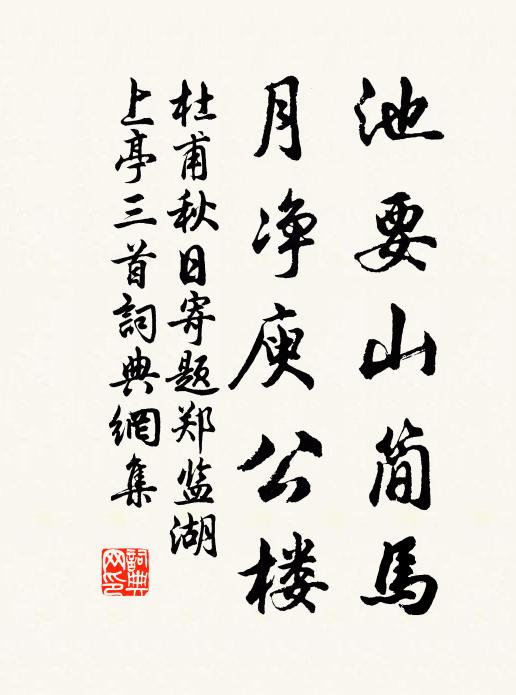 池要山简馬
月净庾公楼
杜甫秋日寄题郑监湖
上亭三首詞典網集
詞典
网印